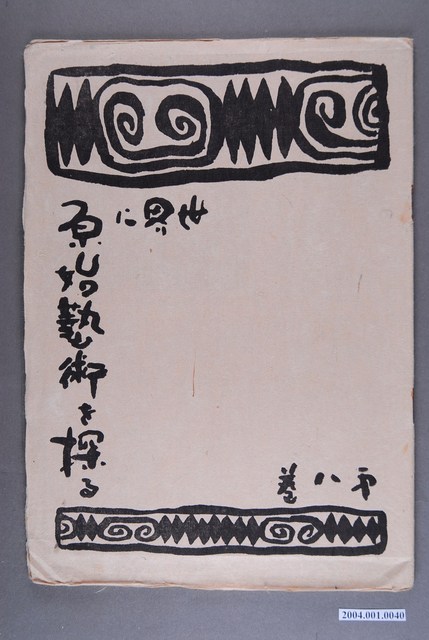 世界に
原始藝術を探る
第八巻
2004.001.0040